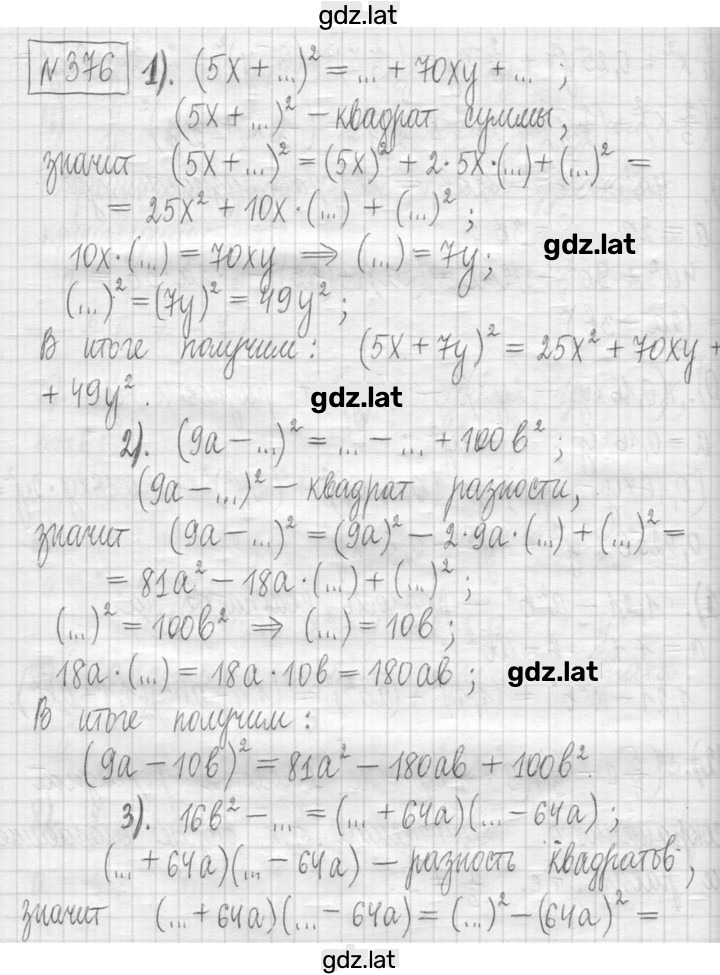 gdz.lat
№376 1). (5x + ...)² = ... + 70xy + ... ;
(5x + ...)² – квадрат суммы,
значит (5x + ...)² = (5x)² + 2·5x·(...) + (...)² =
= 25x² + 10x·(...) + (...)² ;
10x·(...) = 70xy ⇒ (...) = 7y;
gdz.lat
(...)² = (7y)² = 49y² ;
В итоге получим: (5x + 7y)² = 25x² + 70xy +
+ 49y².
gdz.lat
2). (9a – ...)² = ... – ... + 100b² ;
(9a – ...)² – квадрат разности,
значит (9a – ...)² = (9a)² – 2·9a·(...) + (...)² =
= 81a² – 18a·(...) + (...)² ;
(...)² = 100b² ⇒ (...) = 10b ;
18a·(...) = 18a·10b = 180ab ;
gdz.lat
В итоге получим:
(9a – 10b)² = 81a² – 180ab + 100b².
3). 16b² – ... = (... + 64a)(... – 64a) ;
(... + 64a)(... – 64a) – разность квадратов,
значит (... + 64a)(... – 64a) = (...)² – (64a)² =
gdz.lat